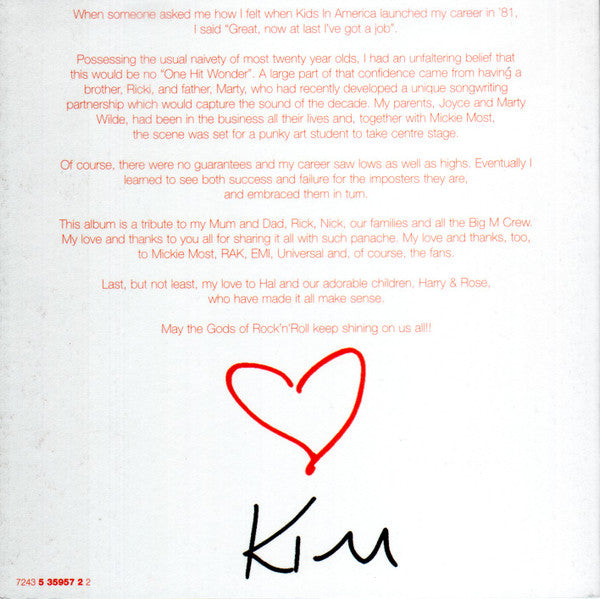 When someone asked me how I felt when Kids In America launched my career in '81,
I said "Great, now at last I've got a job".
Possessing the usual naivety of most twenty year olds, I had an unfaltering belief that
this would be no "One Hit Wonder". A large part of that confidence came from having a
brother, Ricki, and father, Marty, who had recently developed a unique songwriting
partnership which would capture the sound of the decade. My parents, Joyce and Marty
Wilde, had been in the business all their lives and, together with Mickie Most,
the scene was set for a punky art student to take centre stage.
Of course, there were no guarantees and my career saw lows as well as highs. Eventually I
learned to see both success and failure for the imposters they are,
and embraced them in turn.
This album is a tribute to my Mum and Dad, Rick, Nick, our families and all the Big M Crew.
My love and thanks to you all for sharing it all with such panache. My love and thanks, too,
to Mickie Most, RAK, EMI, Universal and, of course, the fans.
Last, but not least, my love to Hal and our adorable children, Harry & Rose,
who have made it all make sense.
May the Gods of Rock'n'Roll keep shining on us all!!
Kim
7243 5 35957 2 2